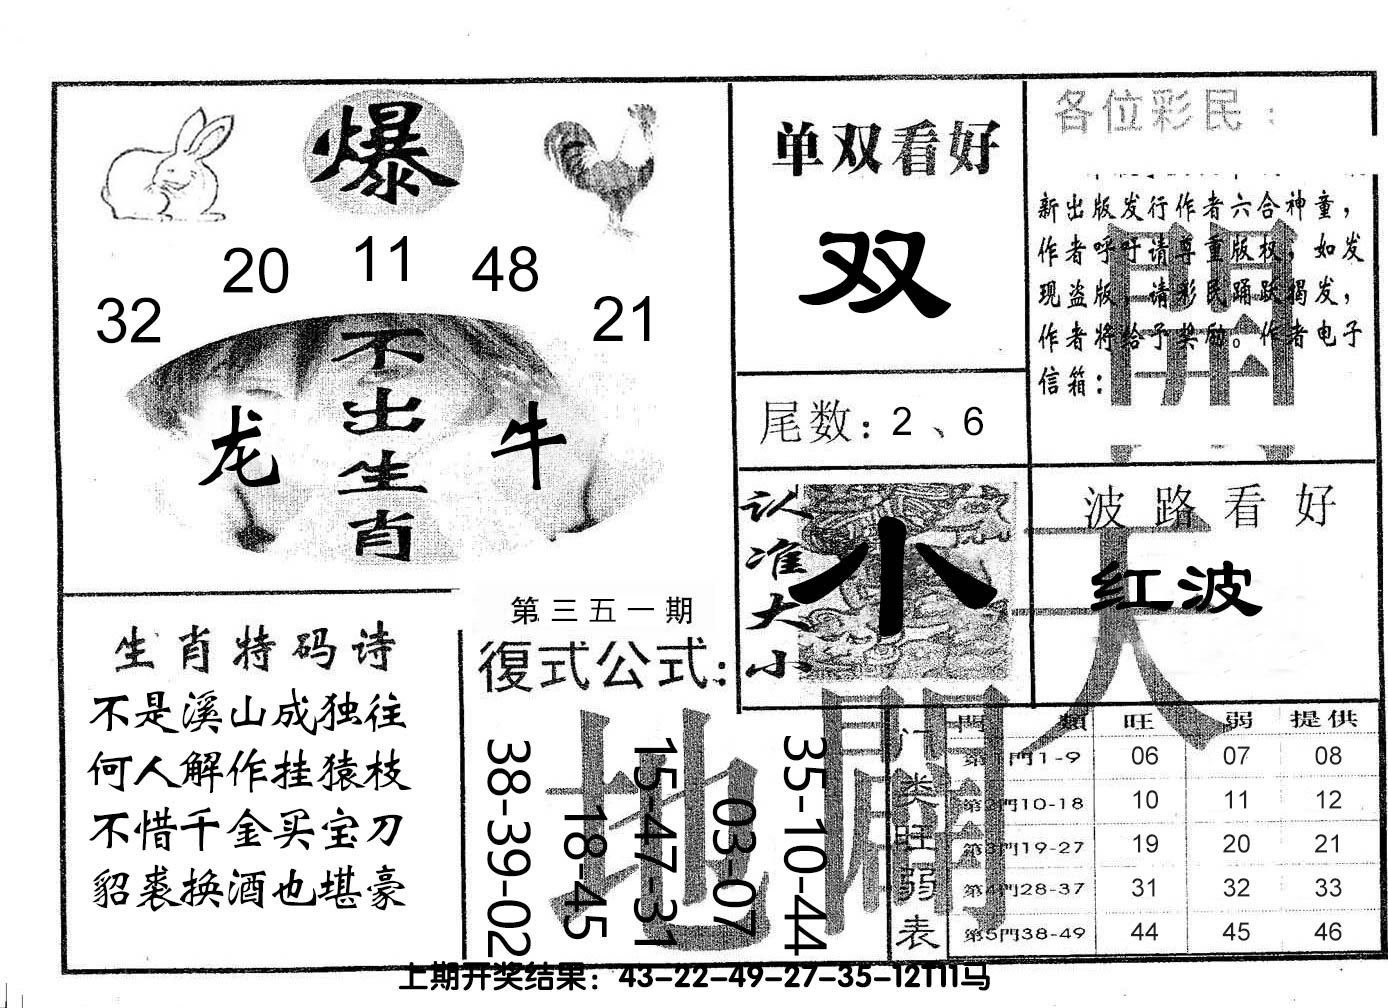 爆
32
20
11
48
21
不出生肖
龙
牛
单双看好
双
尾数：2、6
认准大小
小
各位彩民：
新出版发行作者六合神童，
作者呼吁请尊重版权，如发
现盗版，请彩民踊跃揭发，
作者将给予奖励。作者电子
信箱：
開
天
波路看好
红波
生肖特码诗
不是溪山成独往
何人解作挂猿枝
不惜千金买宝刀
貂裘换酒也堪豪
第三五一期
復式公式：
38-39-02
18-45
15-47-31
03-07
35-10-44
地
門類 旺 弱 提供
第1門1-9 06 07 08
第2門10-18 10 11 12
第3門19-27 19 20 21
第4門28-37 31 32 33
第5門38-49 44 45 46
门类旺弱表
上期开奖结果：43-22-49-27-35-12T11马